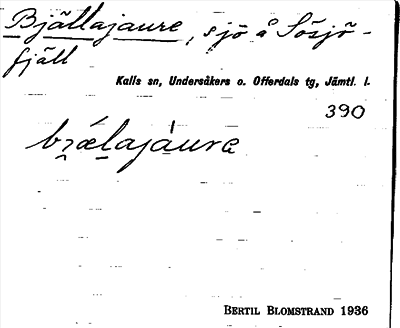 Bjällajaure, sjö å Sösjö-
fjäll
Kalls sn, Undersåkers o. Offerdals tg, Jämtl. l.
390
bɲǽlajàura
BERTIL BLOMSTRAND 1936